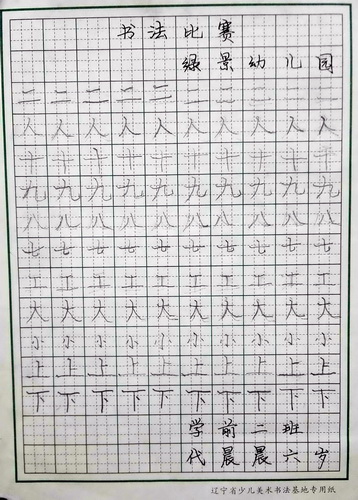 书法比赛
绿景幼儿园
二二二二二二二二二二
人人人人人人人人人人
十十十十十十十十十十
九九九九九九九九九九
八八八八八八八八八八
七七七七七七七七七七
工工工工工工工工工工
大大大大大大大大大大
小小小小小小小小小小
上上上上上上上上上上
下下下下下下下下下下
学前二班
代晨晨六岁
辽宁省少儿美术书法基地专用纸